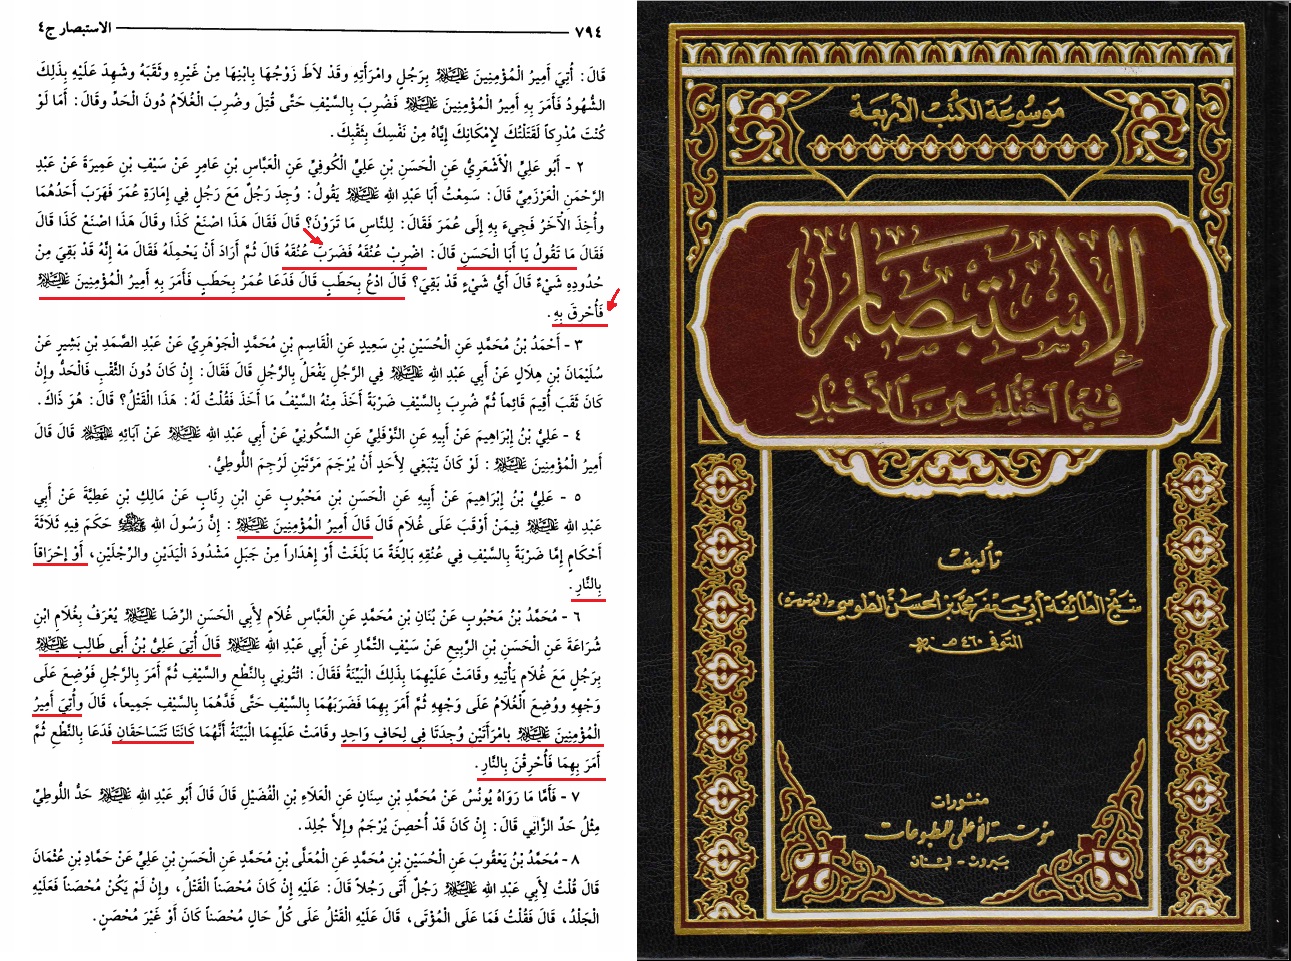 ٧٩٤ الاستبصار ج٤
قَالَ: أُتِيَ أَمِيرُ الْمُؤْمِنِينَ عَلَيْهِ السَّلَام بِرَجُلٍ وامْرَأَتِهِ وقَدْ لاَطَ زَوْجُهَا بِابْنِهَا مِنْ غَيْرِهِ وثَقَبَهُ وشَهِدَ عَلَيْهِ بِذَلِكَ
الشُّهُودُ فَأَمَرَ بِهِ أَمِيرُ الْمُؤْمِنِينَ عَلَيْهِ السَّلَام فَضُرِبَ بِالسَّيْفِ حَتَّى قُتِلَ وضُرِبَ الْغُلاَمُ دُونَ الْحَدِّ وقَالَ: أَمَا لَوْ
كُنْتَ مُدْرِكاً لَقَتَلْتُكَ لِإِمْكَانِكَ إِيَّاهُ مِنْ نَفْسِكَ بِثَقْبِكَ.
٢ - أَبُو عَلِيٍّ الْأَشْعَرِيُّ عَنِ الْحَسَنِ بْنِ عَلِيٍّ الْكُوفِيِّ عَنِ الْعَبَّاسِ بْنِ عَامِرٍ عَنْ سَيْفِ بْنِ عَمِيرَةَ عَنْ عَبْدِ
الرَّحْمَنِ الْعَرْزَمِيِّ قَالَ: سَمِعْتُ أَبَا عَبْدِ اللهِ عَلَيْهِ السَّلَام يَقُولُ: وُجِدَ رَجُلٌ مَعَ رَجُلٍ فِي إِمَارَةِ عُمَرَ فَهَرَبَ أَحَدُهُمَا
وأُخِذَ الْآخَرُ فَجِيءَ بِهِ إِلَى عُمَرَ فَقَالَ: لِلنَّاسِ مَا تَرَوْنَ؟ قَالَ فَقَالَ هَذَا اصْنَعْ كَذَا وقَالَ هَذَا اصْنَعْ كَذَا قَالَ
فَقَالَ مَا تَقُولُ يَا أَبَا الْحَسَنِ قَالَ: اضْرِبْ عُنُقَهُ فَضَرَبَ عُنُقَهُ قَالَ ثُمَّ أَرَادَ أَنْ يَحْمِلَهُ فَقَالَ مَهْ إِنَّهُ قَدْ بَقِيَ مِنْ
حُدُودِهِ شَيْءٌ قَالَ أَيُّ شَيْءٍ قَدْ بَقِيَ؟ قَالَ ادْعُ بِحَطَبٍ قَالَ فَدَعَا عُمَرُ بِحَطَبٍ فَأَمَرَ بِهِ أَمِيرُ الْمُؤْمِنِينَ عَلَيْهِ السَّلَام
فَأُحْرِقَ بِهِ.
٣ - أَحْمَدُ بْنُ مُحَمَّدٍ عَنِ الْحُسَيْنِ بْنِ سَعِيدٍ عَنِ الْقَاسِمِ بْنِ مُحَمَّدٍ الْجَوْهَرِيِّ عَنْ عَبْدِ الصَّمَدِ بْنِ بَشِيرٍ عَنْ
سُلَيْمَانَ بْنِ هِلاَلٍ عَنْ أَبِي عَبْدِ اللهِ عَلَيْهِ السَّلَام فِي الرَّجُلِ يَفْعَلُ بِالرَّجُلِ قَالَ فَقَالَ: إِنْ كَانَ دُونَ الثَّقْبِ فَالْحَدُّ وإِنْ
كَانَ ثَقَبَ أُقِيمَ قَائِماً ثُمَّ ضُرِبَ بِالسَّيْفِ ضَرْبَةً أَخَذَ مِنْهُ السَّيْفُ مَا أَخَذَ فَقُلْتُ لَهُ: هَذَا الْقَتْلُ؟ قَالَ: هُوَ ذَاكَ.
٤ - عَلِيُّ بْنُ إِبْرَاهِيمَ عَنْ أَبِيهِ عَنِ النَّوْفَلِيِّ عَنِ السَّكُونِيِّ عَنْ أَبِي عَبْدِ اللهِ عَلَيْهِ السَّلَام عَنْ آبَائِهِ عَلَيْهِمُ السَّلَام قَالَ قَالَ
أَمِيرُ الْمُؤْمِنِينَ عَلَيْهِ السَّلَام : لَوْ كَانَ يَنْبَغِي لِأَحَدٍ أَنْ يُرْجَمَ مَرَّتَيْنِ لَرُجِمَ اللُّوطِيُّ.
٥ - عَلِيُّ بْنُ إِبْرَاهِيمَ عَنْ أَبِيهِ عَنِ الْحَسَنِ بْنِ مَحْبُوبٍ عَنِ ابْنِ رِئَابٍ عَنْ مَالِكِ بْنِ عَطِيَّةَ عَنْ أَبِي
عَبْدِ اللهِ عَلَيْهِ السَّلَام فِيمَنْ أَوْقَبَ عَلَى غُلاَمٍ قَالَ قَالَ أَمِيرُ الْمُؤْمِنِينَ عَلَيْهِ السَّلَام : إِنَّ رَسُولَ اللهِ ﷺ حَكَمَ فِيهِ ثَلاَثَةَ
أَحْكَامٍ إِمَّا ضَرْبَةً بِالسَّيْفِ فِي عُنُقِهِ بَالِغَةً مَا بَلَغَتْ أَوْ إِهْدَاراً مِنْ جَبَلٍ مَشْدُودَ الْيَدَيْنِ والرِّجْلَيْنِ، أَوْ إِحْرَاقاً
بِالنَّارِ.
٦ - مُحَمَّدُ بْنُ مَحْبُوبٍ عَنْ بُنَانِ بْنِ مُحَمَّدٍ عَنِ الْعَبَّاسِ غُلاَمٍ لِأَبِي الْحَسَنِ الرِّضَا عَلَيْهِ السَّلَام يُعْرَفُ بِغُلاَمِ ابْنِ
شُرَاعَةَ عَنِ الْحَسَنِ بْنِ الرَّبِيعِ عَنْ سَيْفٍ التَّمَّارِ عَنْ أَبِي عَبْدِ اللهِ عَلَيْهِ السَّلَام قَالَ أُتِيَ عَلِيُّ بْنُ أَبِي طَالِبٍ عَلَيْهِ السَّلَام
بِرَجُلٍ مَعَ غُلاَمٍ يَأْتِيهِ وقَامَتْ عَلَيْهِمَا بِذَلِكَ الْبَيِّنَةُ فَقَالَ: ائْتُونِي بِالنَّطْعِ والسَّيْفِ ثُمَّ أَمَرَ بِالرَّجُلِ فَوُضِعَ عَلَى
وَجْهِهِ ووُضِعَ الْغُلاَمُ عَلَى وَجْهِهِ ثُمَّ أَمَرَ بِهِمَا فَضَرَبَهُمَا بِالسَّيْفِ حَتَّى قَدَّهُمَا بِالسَّيْفِ جَمِيعاً، قَالَ وأُتِيَ أَمِيرُ
الْمُؤْمِنِينَ عَلَيْهِ السَّلَام بِامْرَأَتَيْنِ وُجِدَتَا فِي لِحَافٍ وَاحِدٍ وقَامَتْ عَلَيْهِمَا الْبَيِّنَةُ أَنَّهُمَا كَانَتَا تَتَسَاحَقَانِ فَدَعَا بِالنَّطْعِ ثُمَّ
أَمَرَ بِهِمَا فَأُحْرِقْنَ بِالنَّارِ.
٧ - فَأَمَّا مَا رَوَاهُ يُونُسُ عَنْ مُحَمَّدِ بْنِ سِنَانٍ عَنِ الْعَلاَءِ بْنِ الْفُضَيْلِ قَالَ قَالَ أَبُو عَبْدِ اللهِ عَلَيْهِ السَّلَام حَدُّ اللُّوطِيِّ
مِثْلُ حَدِّ الزَّانِي قَالَ: إِنْ كَانَ قَدْ أُحْصِنَ يُرْجَمُ وإِلاَّ جُلِدَ.
٨ - مُحَمَّدُ بْنُ يَعْقُوبَ عَنِ الْحُسَيْنِ بْنِ مُحَمَّدٍ عَنِ الْمُعَلَّى بْنِ مُحَمَّدٍ عَنِ الْحَسَنِ بْنِ عَلِيٍّ عَنْ حَمَّادِ بْنِ عُثْمَانَ
قَالَ قُلْتُ لِأَبِي عَبْدِ اللهِ عَلَيْهِ السَّلَام رَجُلٌ أَتَى رَجُلاً قَالَ: عَلَيْهِ إِنْ كَانَ مُحْصَناً الْقَتْلُ، وإِنْ لَمْ يَكُنْ مُحْصَناً فَعَلَيْهِ
الْجَلْدُ، قَالَ فَقُلْتُ فَمَا عَلَى الْمُؤْتَى، قَالَ عَلَيْهِ الْقَتْلُ عَلَى كُلِّ حَالٍ مُحْصَناً كَانَ أَوْ غَيْرَ مُحْصَنٍ.
موسوعة الكتب الأربعة
الإستبصار
فيما اختلف من الأخبار
تأليف
شيخ الطائفة أبي جعفر محمد بن الحسن الطوسي (قدس سره)
المتوفى ٤٦٠ هـ
منشورات
مؤسسة الأعلمي للمطبوعات
بيروت - لبنان